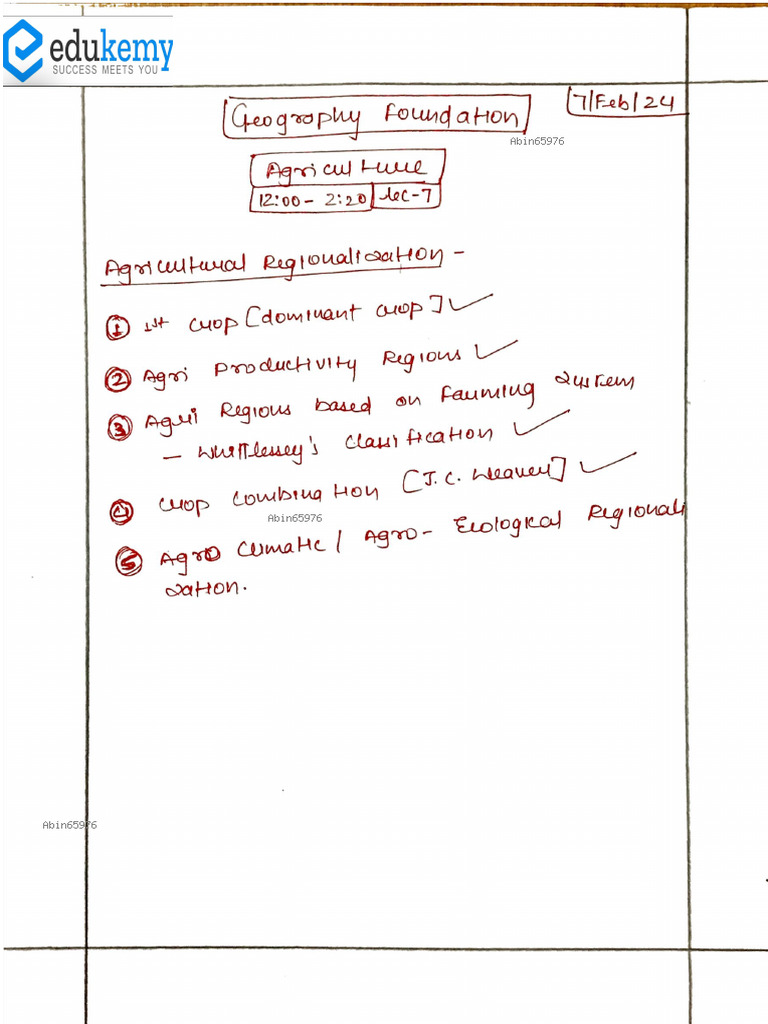 edukemy
SUCCESS MEETS YOU
7/Feb/24
Geography Foundation
Abin65976
Agriculture
12:00 - 2:20 Lec-7
Agricultural Regionalization -
① 1st crop [dominant crop] ✓
② Agri Productivity Regions ✓
③ Agri Regions based on Farming System
- Whittlessey's Classification ✓
④ Crop Combination [J.C. Weaver] ✓
Abin65976
⑤ Agro Climatic / Agro - Ecological Regionali
zation.
Abin65976